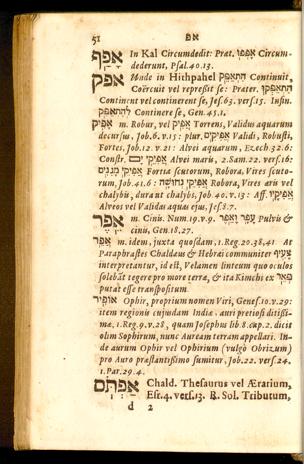 51 אפ
אפף In Kal Circumdedit: Præt. אפפו Circum-
dederunt, Psal. 40.13.
אפק Unde in Hithpahel התאפק Continuit,
Coërcuit vel repressit se: Præter. התאפקו
Continent vel continerent se, Jes. 63. vers. 15. Infin.
להתאפק Continere se, Gen. 45.1.
אפיק m. Robur, vel אפיק Torrens, Validus aquarum
decursus, Job. 6. v. 15: plur. אפיקים Validi, Robusti,
Fortes, Job. 12. v. 21: Alvei aquarum, Ezech. 32.6:
Constr. אפיקי ים Alvei maris, 2. Sam. 22. vers. 16:
אפיקי מגנים Fortia scutorum, Robora, Vires scuto-
rum, Job. 41.6: אפיקי נחושה Robora, Vires æris vel
chalybis, durat chalybs, Job. 40. v. 13: Aff. אפיקיו
Alveos vel Validos aquas ejus, Jes. 8.7.
אפר m. Cinis. Num. 19. v. 9. עפר ואפר Pulvis &
cinis, Gen. 18.27.
אפר m. idem, juxta quosdam, 1. Reg. 20.38, 41 At
Paraphrastes Chaldæus & Hebræi communiter
interpretantur, id est, Velamen linteum quo oculos
solebat tegere pro more terræ, & ita Kimchi ex פאר
putat esse transpositum
אופיר Ophir, proprium nomen Viri, Genes. 10. v. 29:
item regionis cujusdam Indiæ auri pretiosi ditissi-
mæ, 1. Reg. 9. v. 28, quam Josephus lib. 8. cap. 2. dicit
olim Sophirum, nunc Auream terram appellari. In-
de aurum Ophir vel Ophirium (vulgò Obrizum)
pro Auro præstantissimo sumitur, Job. 22. vers. 24.
1. Par. 29.4.
אפתם Chald. Thesaurus vel Ærarium,
Esr. 4. vers. 13. R. Sol. Tributum,
d 2